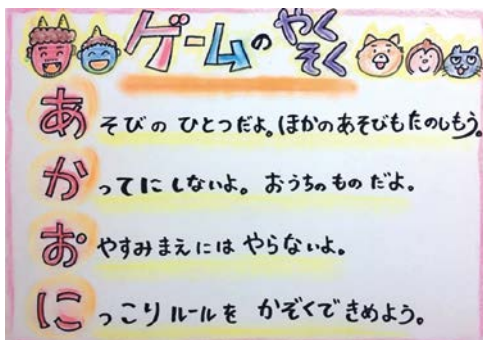 ゲームのやくそく
あそびの ひとつだよ。ほかのあそびもたのしもう。
かってにしないよ。おうちのものだよ。
おやすみまえには やらないよ。
にっこりルールを かぞくできめよう。